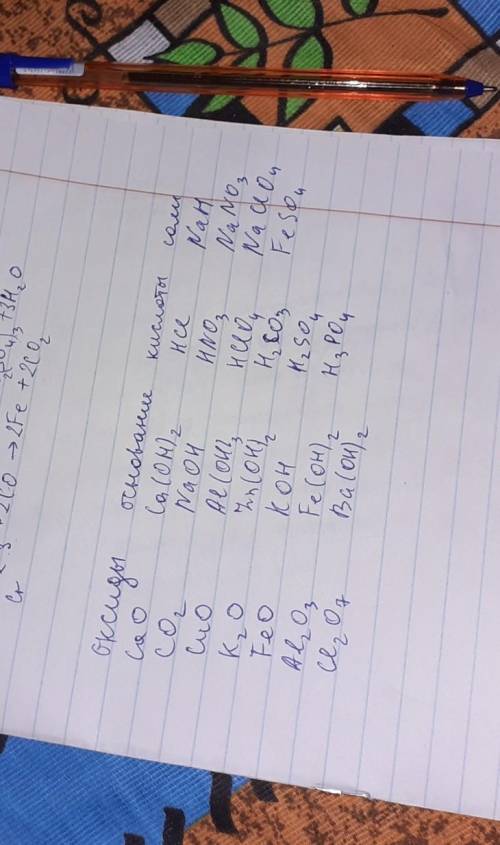 2(SO4)3 + 3H2O
3 + 2CO → 2Fe + 2CO2
оксиды основание кислоты соли
CaO Ca(OH)2 HCl NaH
CO2 NaOH HNO3 NaNO3
CuO Al(OH)3 HClO4 NaClO4
K2O Zn(OH)2 H2CO3 FeSO4
FeO KOH H2SO4
Al2O3 Fe(OH)2 H3PO4
Cl2O7 Ba(OH)2